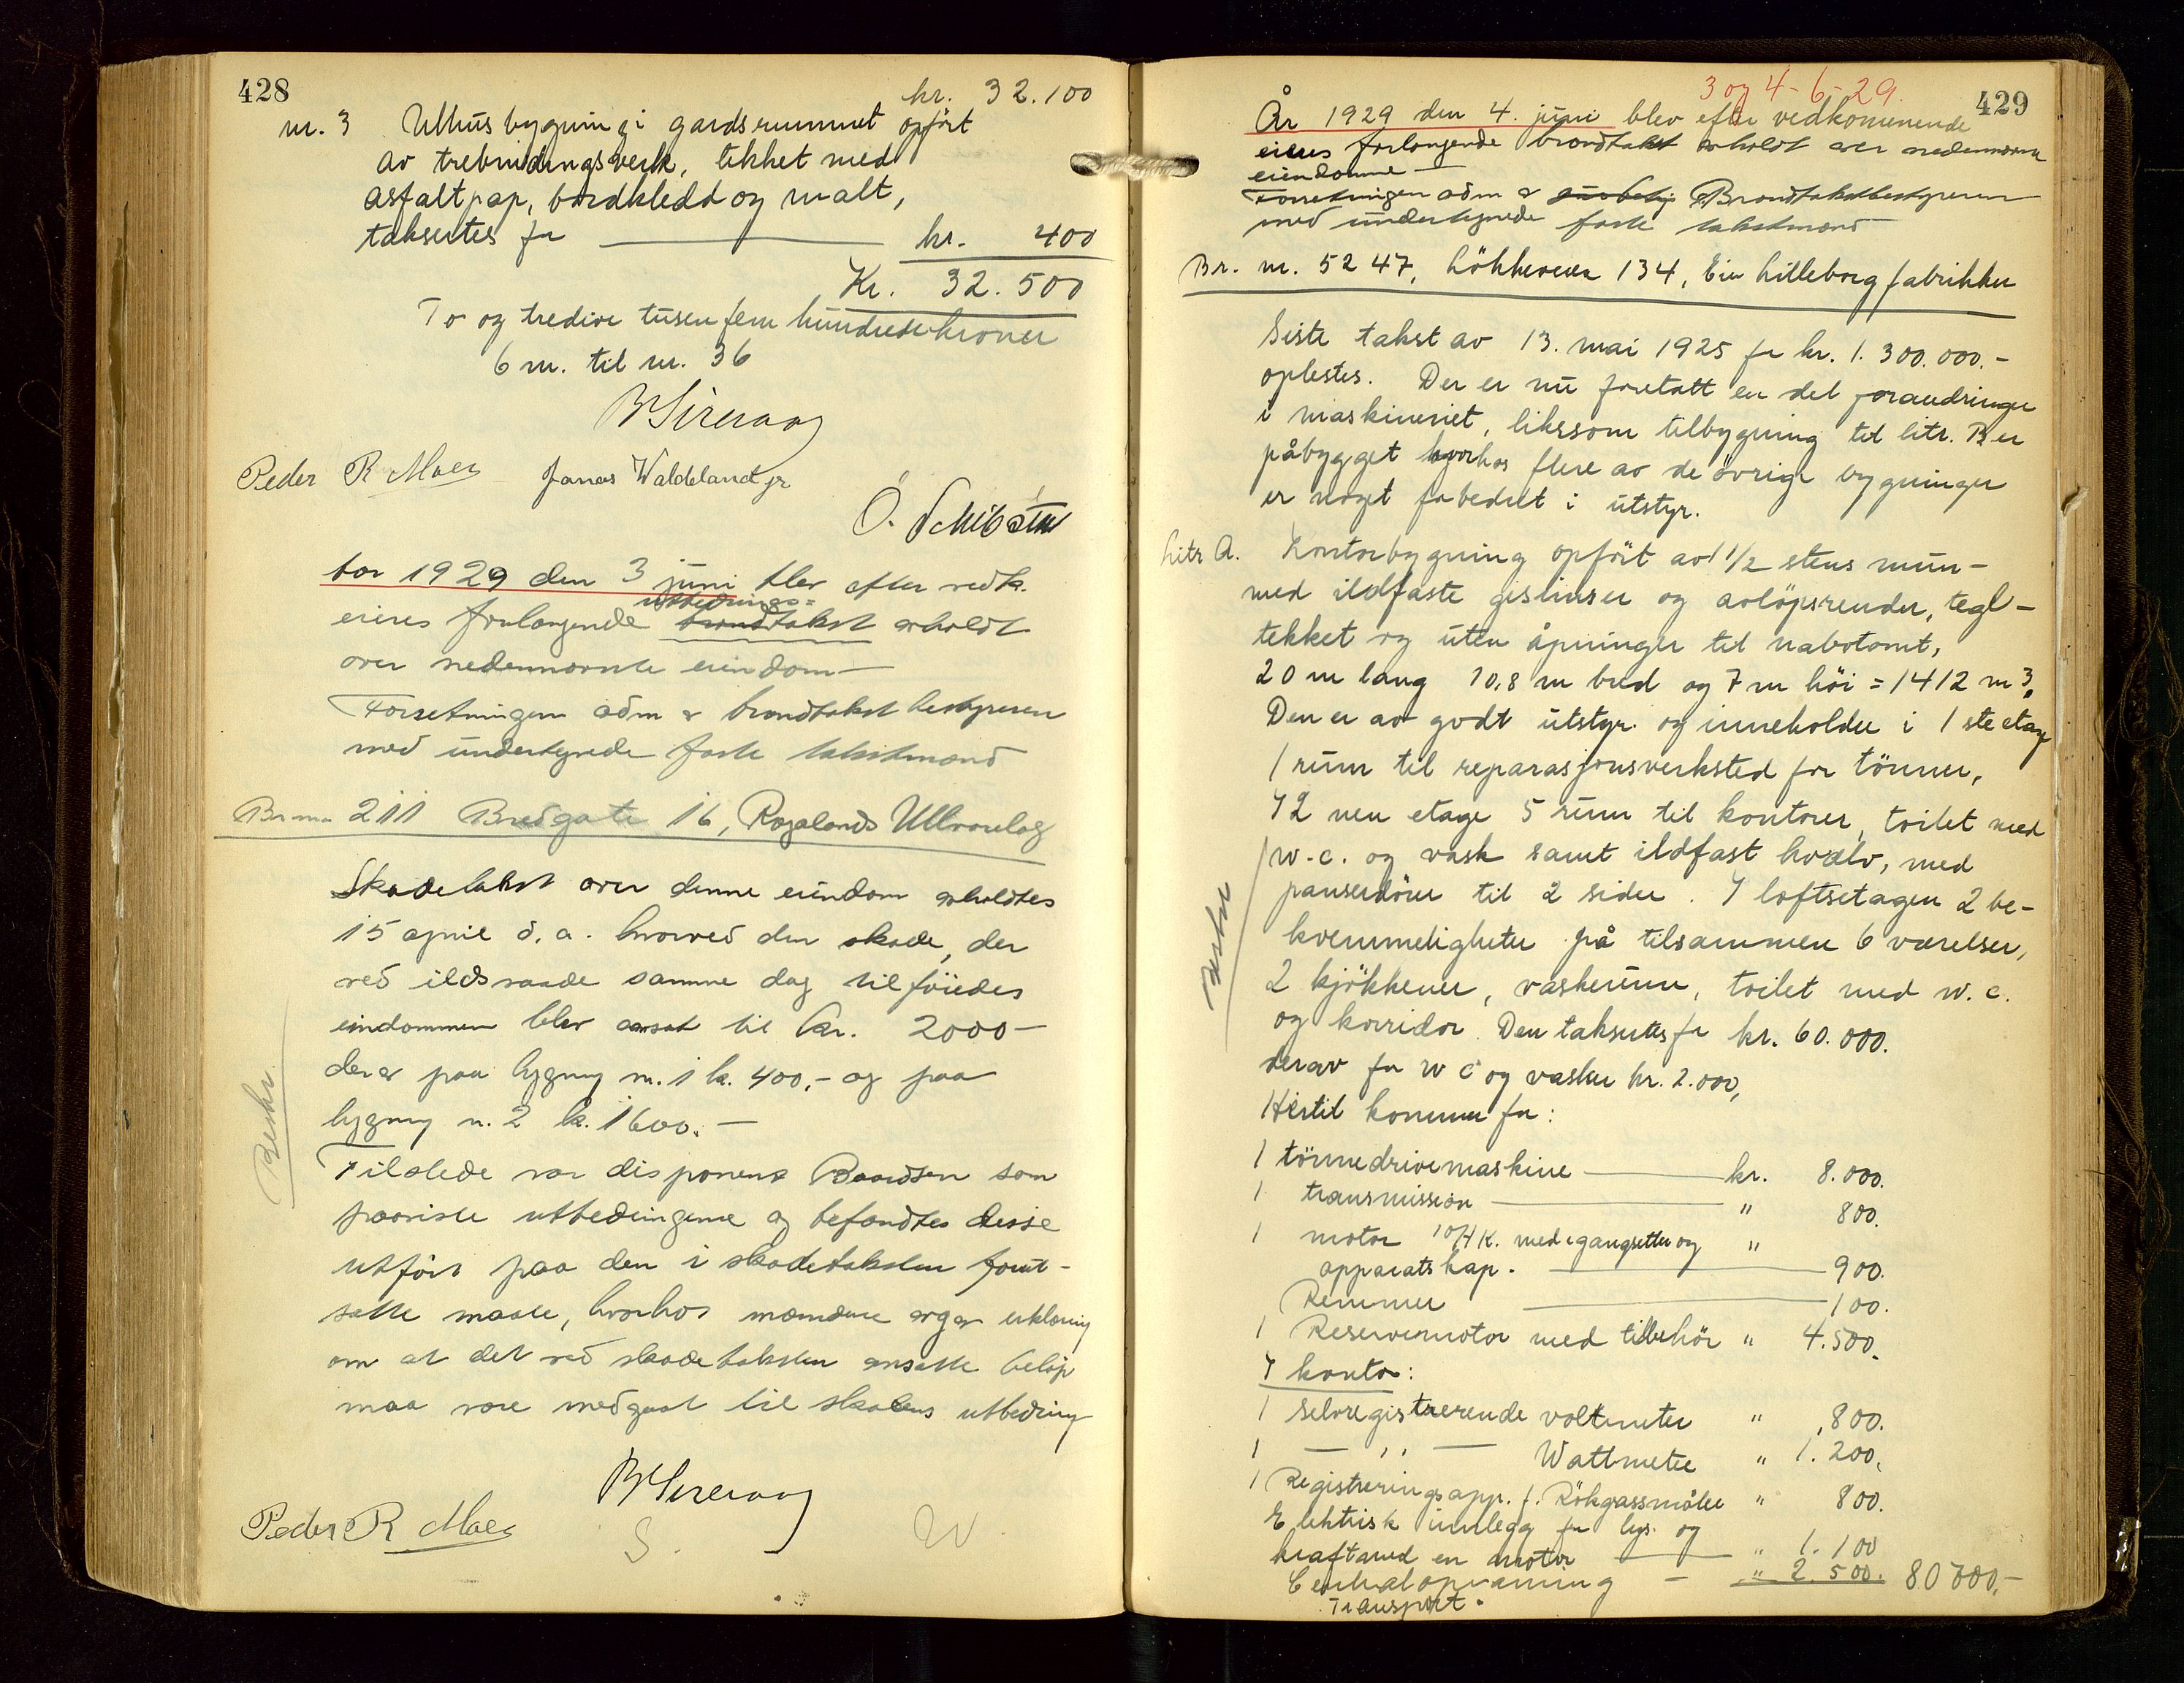 428
kr. 32.100
nr. 3 Uthusbygning i gardsrummet opført
av trebindingsverk, tekket med
asfaltpap, bordkledd og malt,
takseres for kr. 400
Kr. 32.500
To og tredive tusen fem hundrede kroner
6 m. til nr. 36
Peder R Moe Jonas Waldeland jr
Aar 1929 den 3 juni blev efter vedk.
utbedrings=
eieres forlangende brandtakst avholdt
over nedennævnte eiendom —
Forretningen adm av brandtakstbestyreren
med undertegnede faste takstmænd
Br nr 211 Bredgate 16, Rogalands Ullvarelag
Skadetakst over denne eiendom avholdtes
15 april d. a. hvorved den skade, der
ved ildsvaade samme dag tilføiedes
eiendommen blev ansat til kr. 2000 —
derav paa bygning nr. 1 kr. 400,- og paa
bygning nr. 2 kr. 1600. —
Tilstede var disponent Baardsen som
paaviste utbedringene og befandtes disse
utført paa den i skadetaksten forut-
satte maate, hvorhos mændene avgav erklæring
om at det ved skadetaksten ansatte beløp
maa være medgaat til skadens utbedring
Peder R Moe
S. W
Beskr.
3 og 4-6-29.
429
År 1929 den 4. juni blev efter vedkommende
eieres forlangende brandtakst avholdt over nedennævnte
eiendomme —
Forretningen adm av Brandtakstbestyreren
med undertegnede faste takstmænd
Br. nr. 5247, Løkkeveien 134, Eier Lilleborg fabrikker
Siste takst av 13. mai 1925 for kr. 1.300.000.-
oplestes. Der er nu foretatt en del forandringer
i maskineriet, likesom tilbygning til litr. B er
påbygget hvorhos flere av de øvrige bygninger
er noget forbedret i utstyr.
Litr A. Kontorbygning opført av 1 1/2 stens mur-
med ildfaste gesimser og avløpsrender, tegl-
tekket og uten åpninger til nabotomt,
20 m lang 10,8 m bred og 7 m høi = 1412 m3.
Den er av godt utstyr og inneholder i 1ste etage
1 rum til reparasjonsverksted for tønner,
I 2nen etage 5 rum til kontorer, toilet med
w.c. og vask samt ildfast hvælv, med
panserdører til 2 sider. I loftsetagen 2 be-
kvemmeligheter på tilsammen 6 værelser,
2 kjøkkener, vaskerum, toilet med w.c.
og korridor. Den takseres for kr. 60.000.
derav for w c og vasker kr. 2.000,
Hertil kommer for:
1 tønnedrivemaskine kr. 8.000.
1 transmission " 800.
1 motor 10 HK. med igangsetter og "
apparatskap. 900.
Remmer 100.
1 Reservemotor med tilbehør " 4.500.
I kontor:
1 selvregistrerende voltmeter " 800.
1 — " — Wattmeter " 1.200.
1 Registreringsapp. f. Røkgassmåler " 800.
Elektrisk innlegg for lys og
kraft med en motor " 1.100
Centralopvarming — " 2.500. 80700,-
Transport.
Beskr